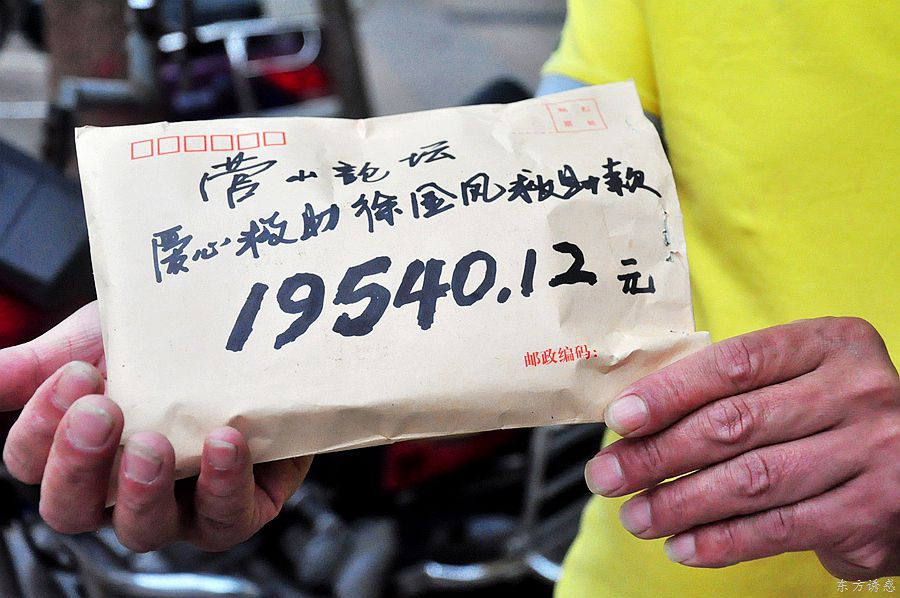 营山论坛
爱心救助徐金凤救助款
19540.12元
邮政编码:
东方诱惑